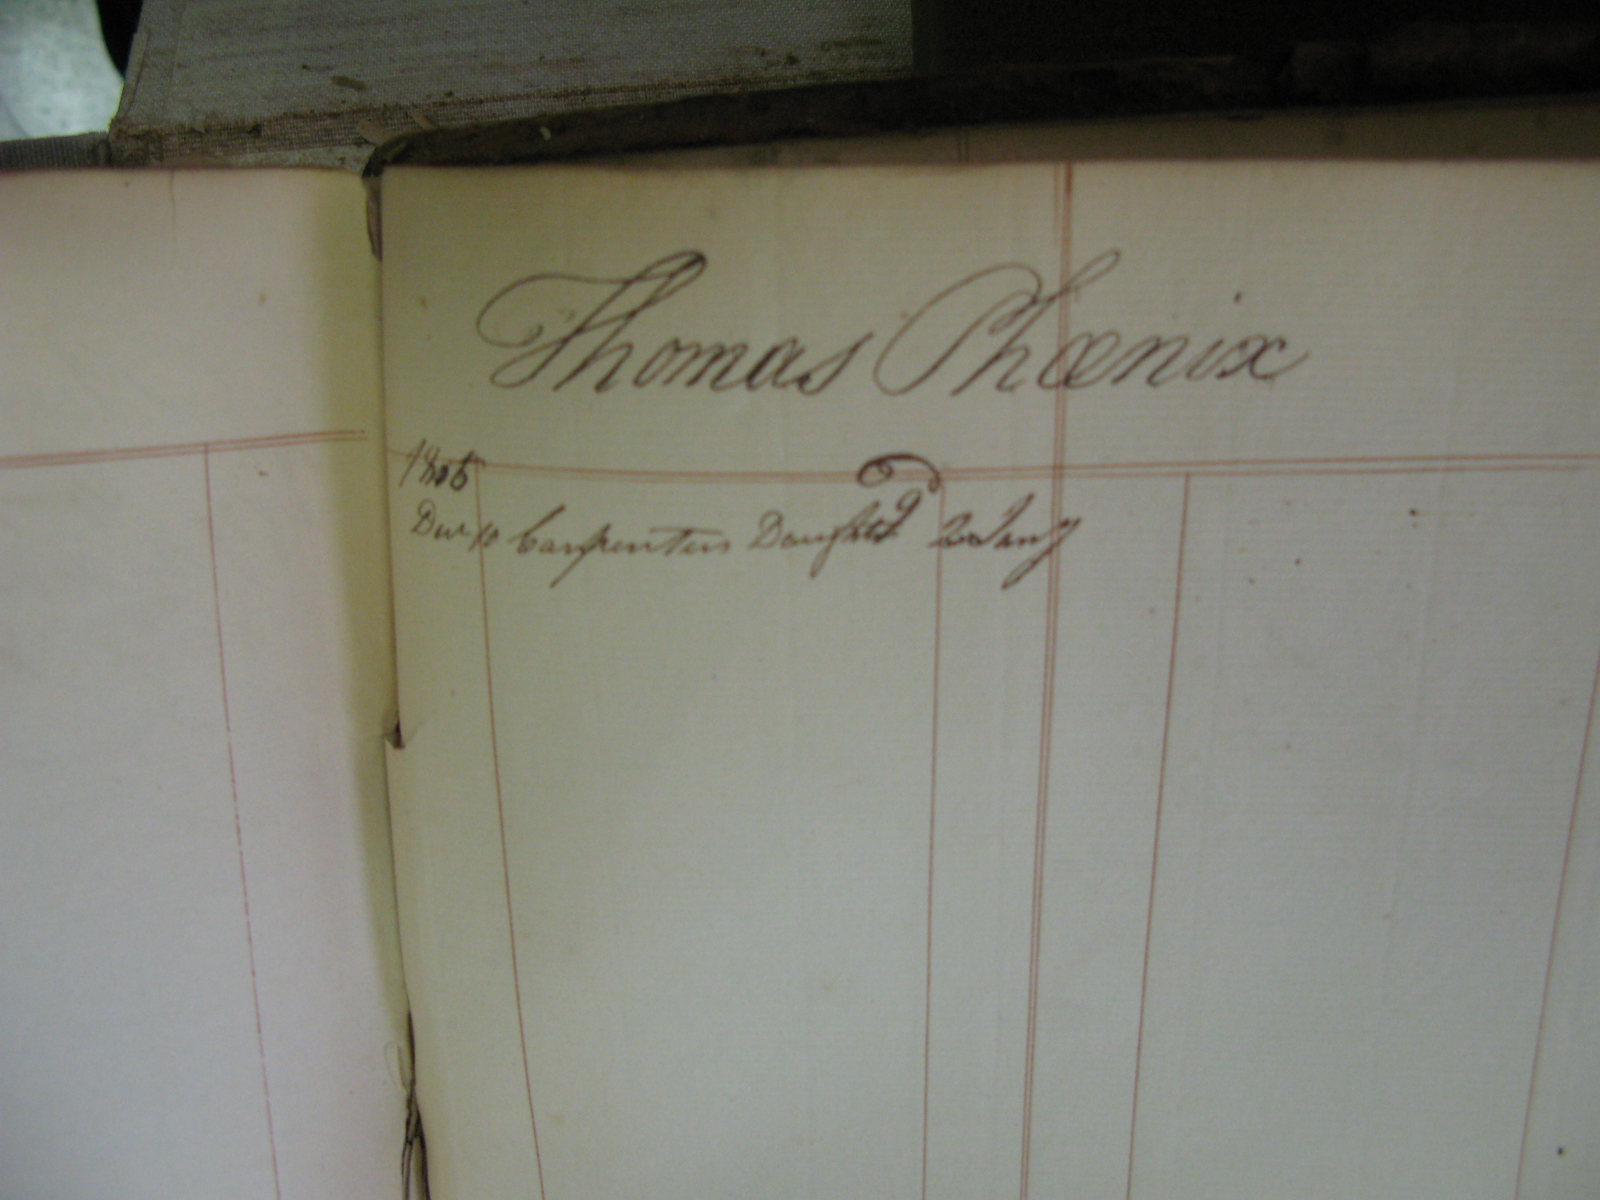 Thomas Phœnix
1805
Dec 10 Carpenters Daught
2 Jany